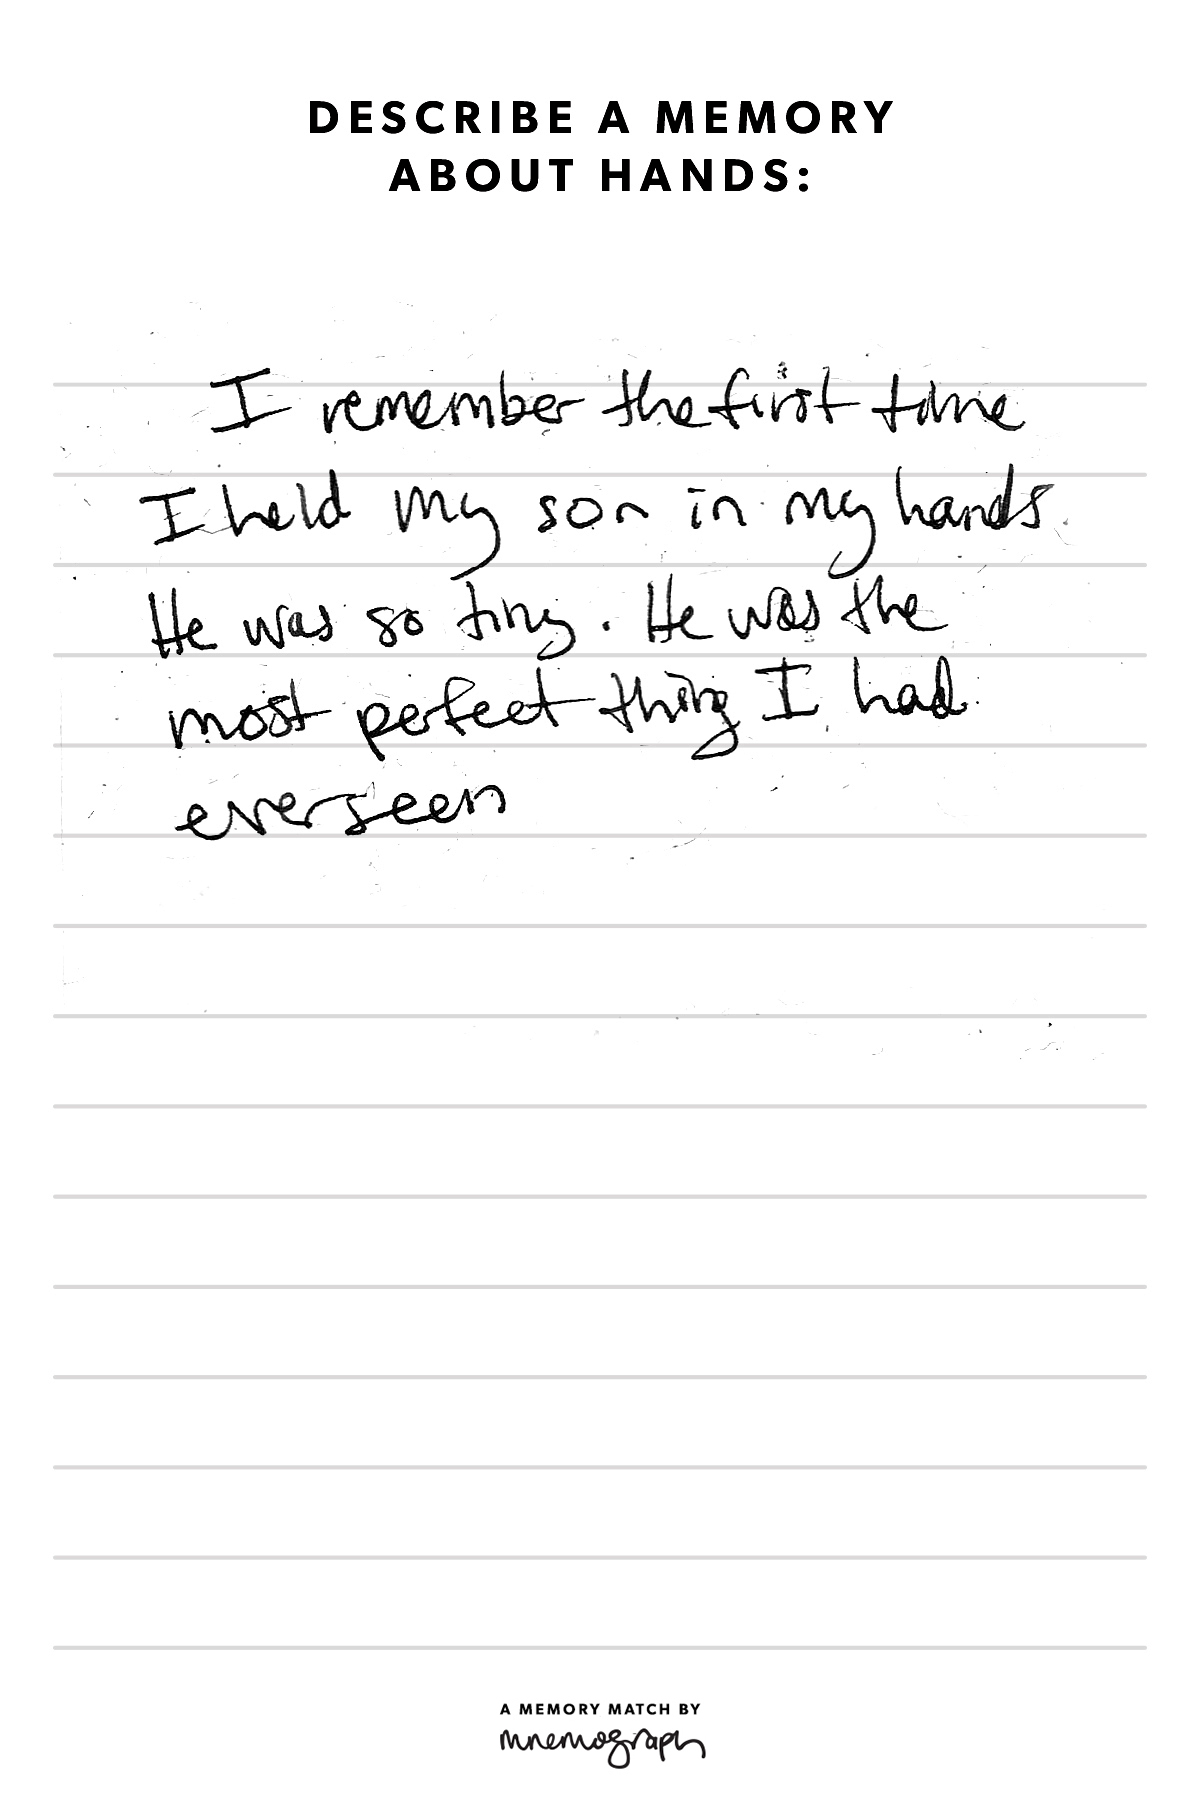 DESCRIBE A MEMORY
ABOUT HANDS:
I remember the first time
I held my son in my hands.
He was so tiny. He was the
most perfect thing I had
ever seen
A MEMORY MATCH BY
mnemograph